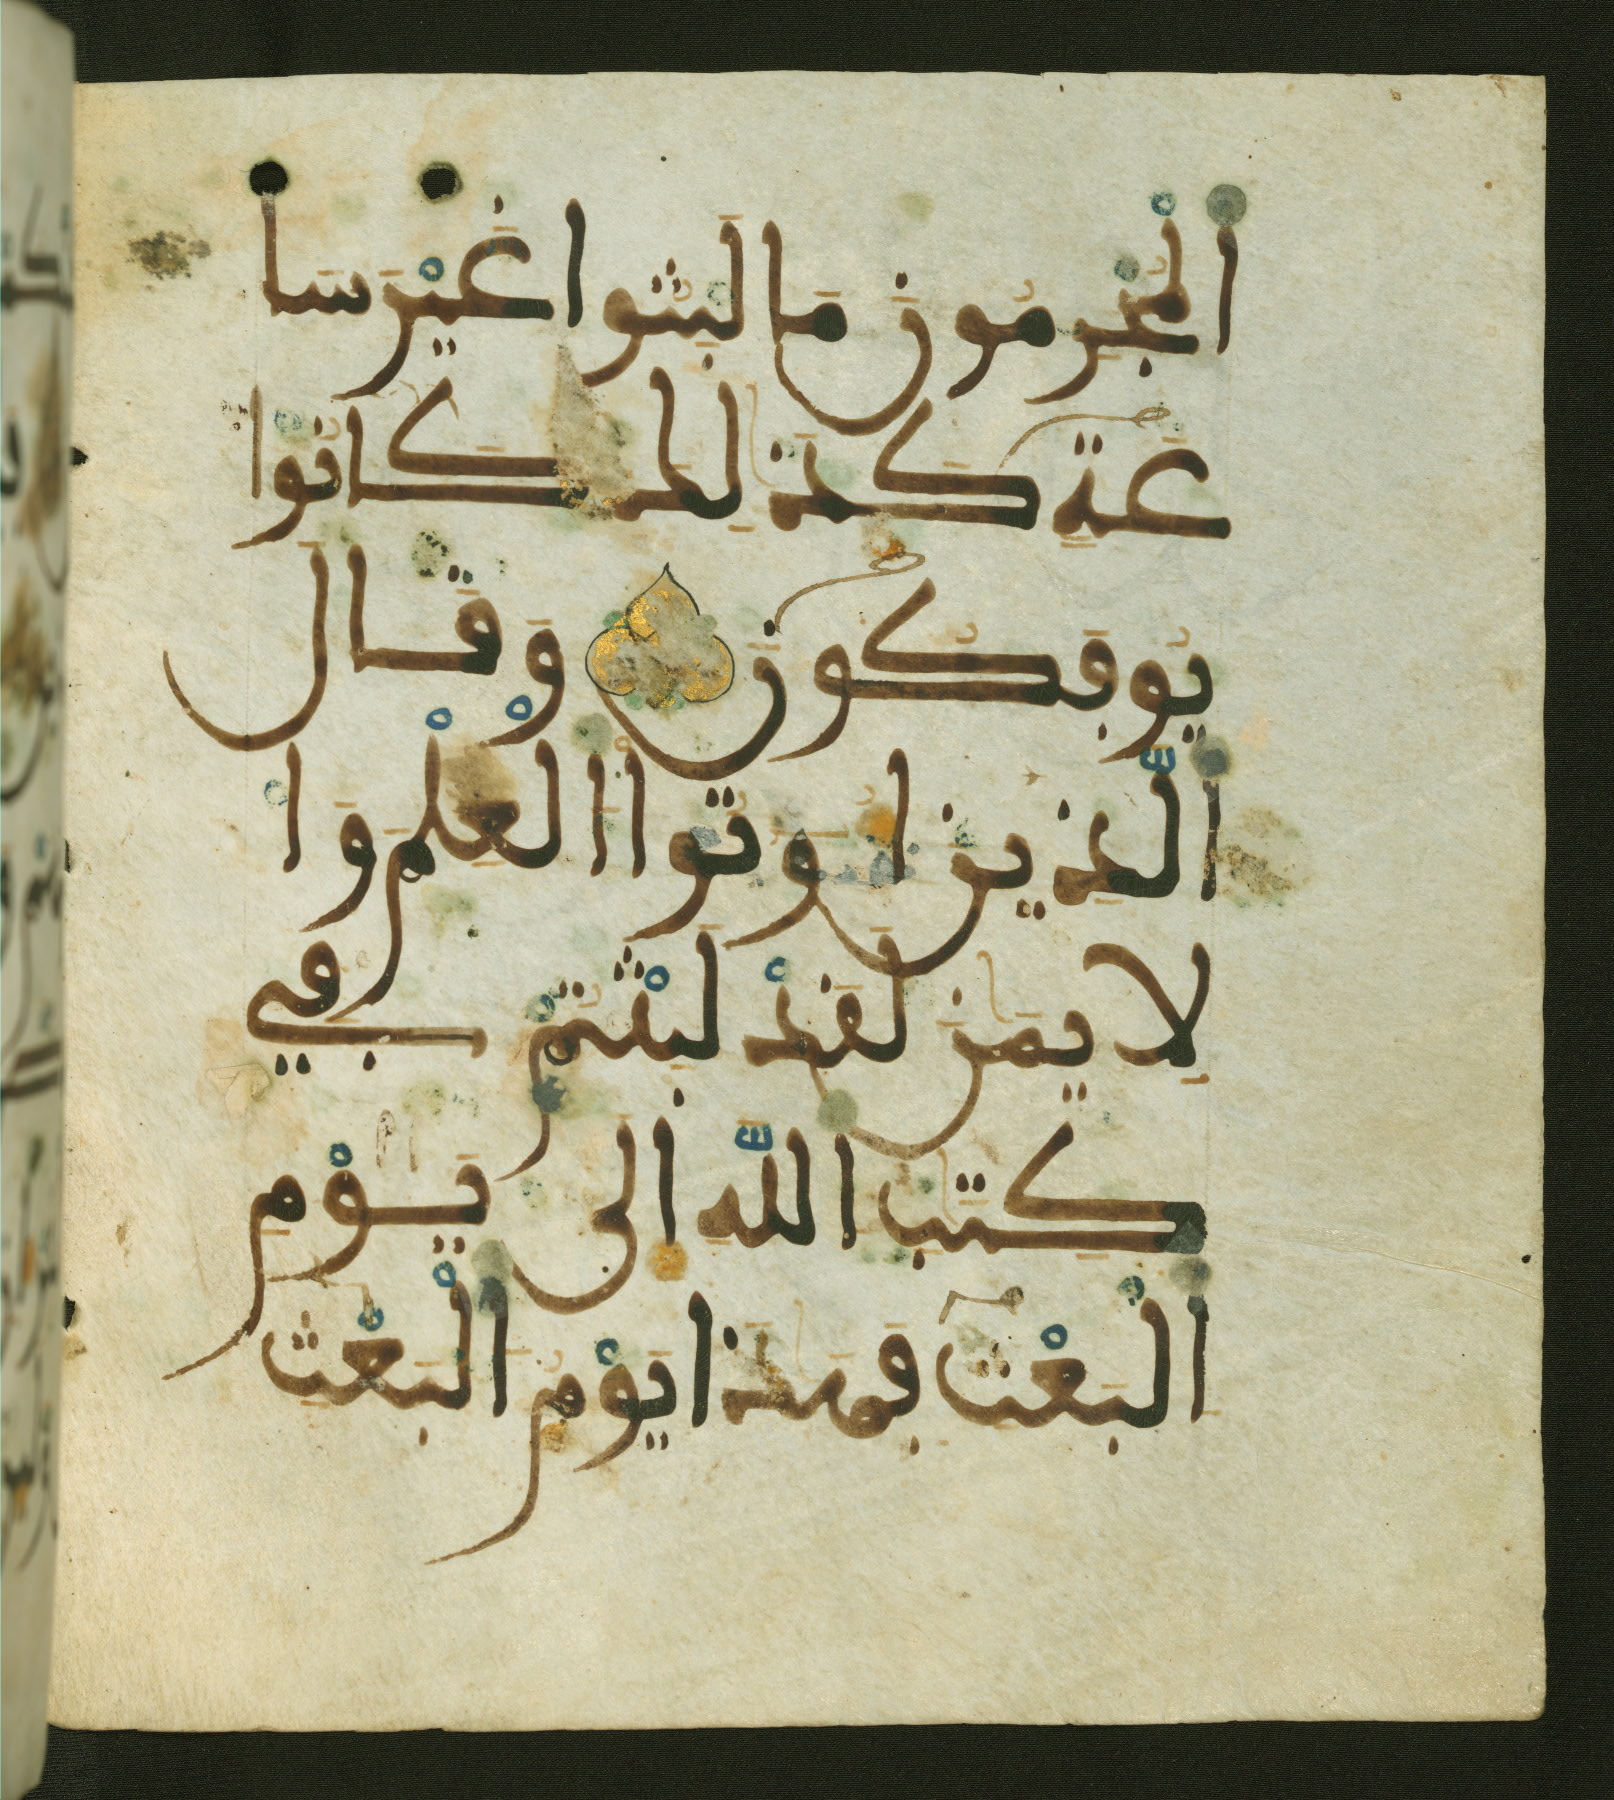 الْمُجْرِمُونَ مَا لَبِثُوا غَيْرَ سَا
عَةٍ كَذَٰلِكَ كَانُوا
يُوفَكُونَ وَقَالَ
الَّذِينَ أُوتُوا الْعِلْمَ وَا
لِايمَٰنَ لَقَدْ لَبِثْتُمْ فِي
كِتَٰبِ اللَّهِ إِلَىٰ يَوْمِ
الْبَعْثِ فَهَٰذَا يَوْمُ الْبَعْثِ